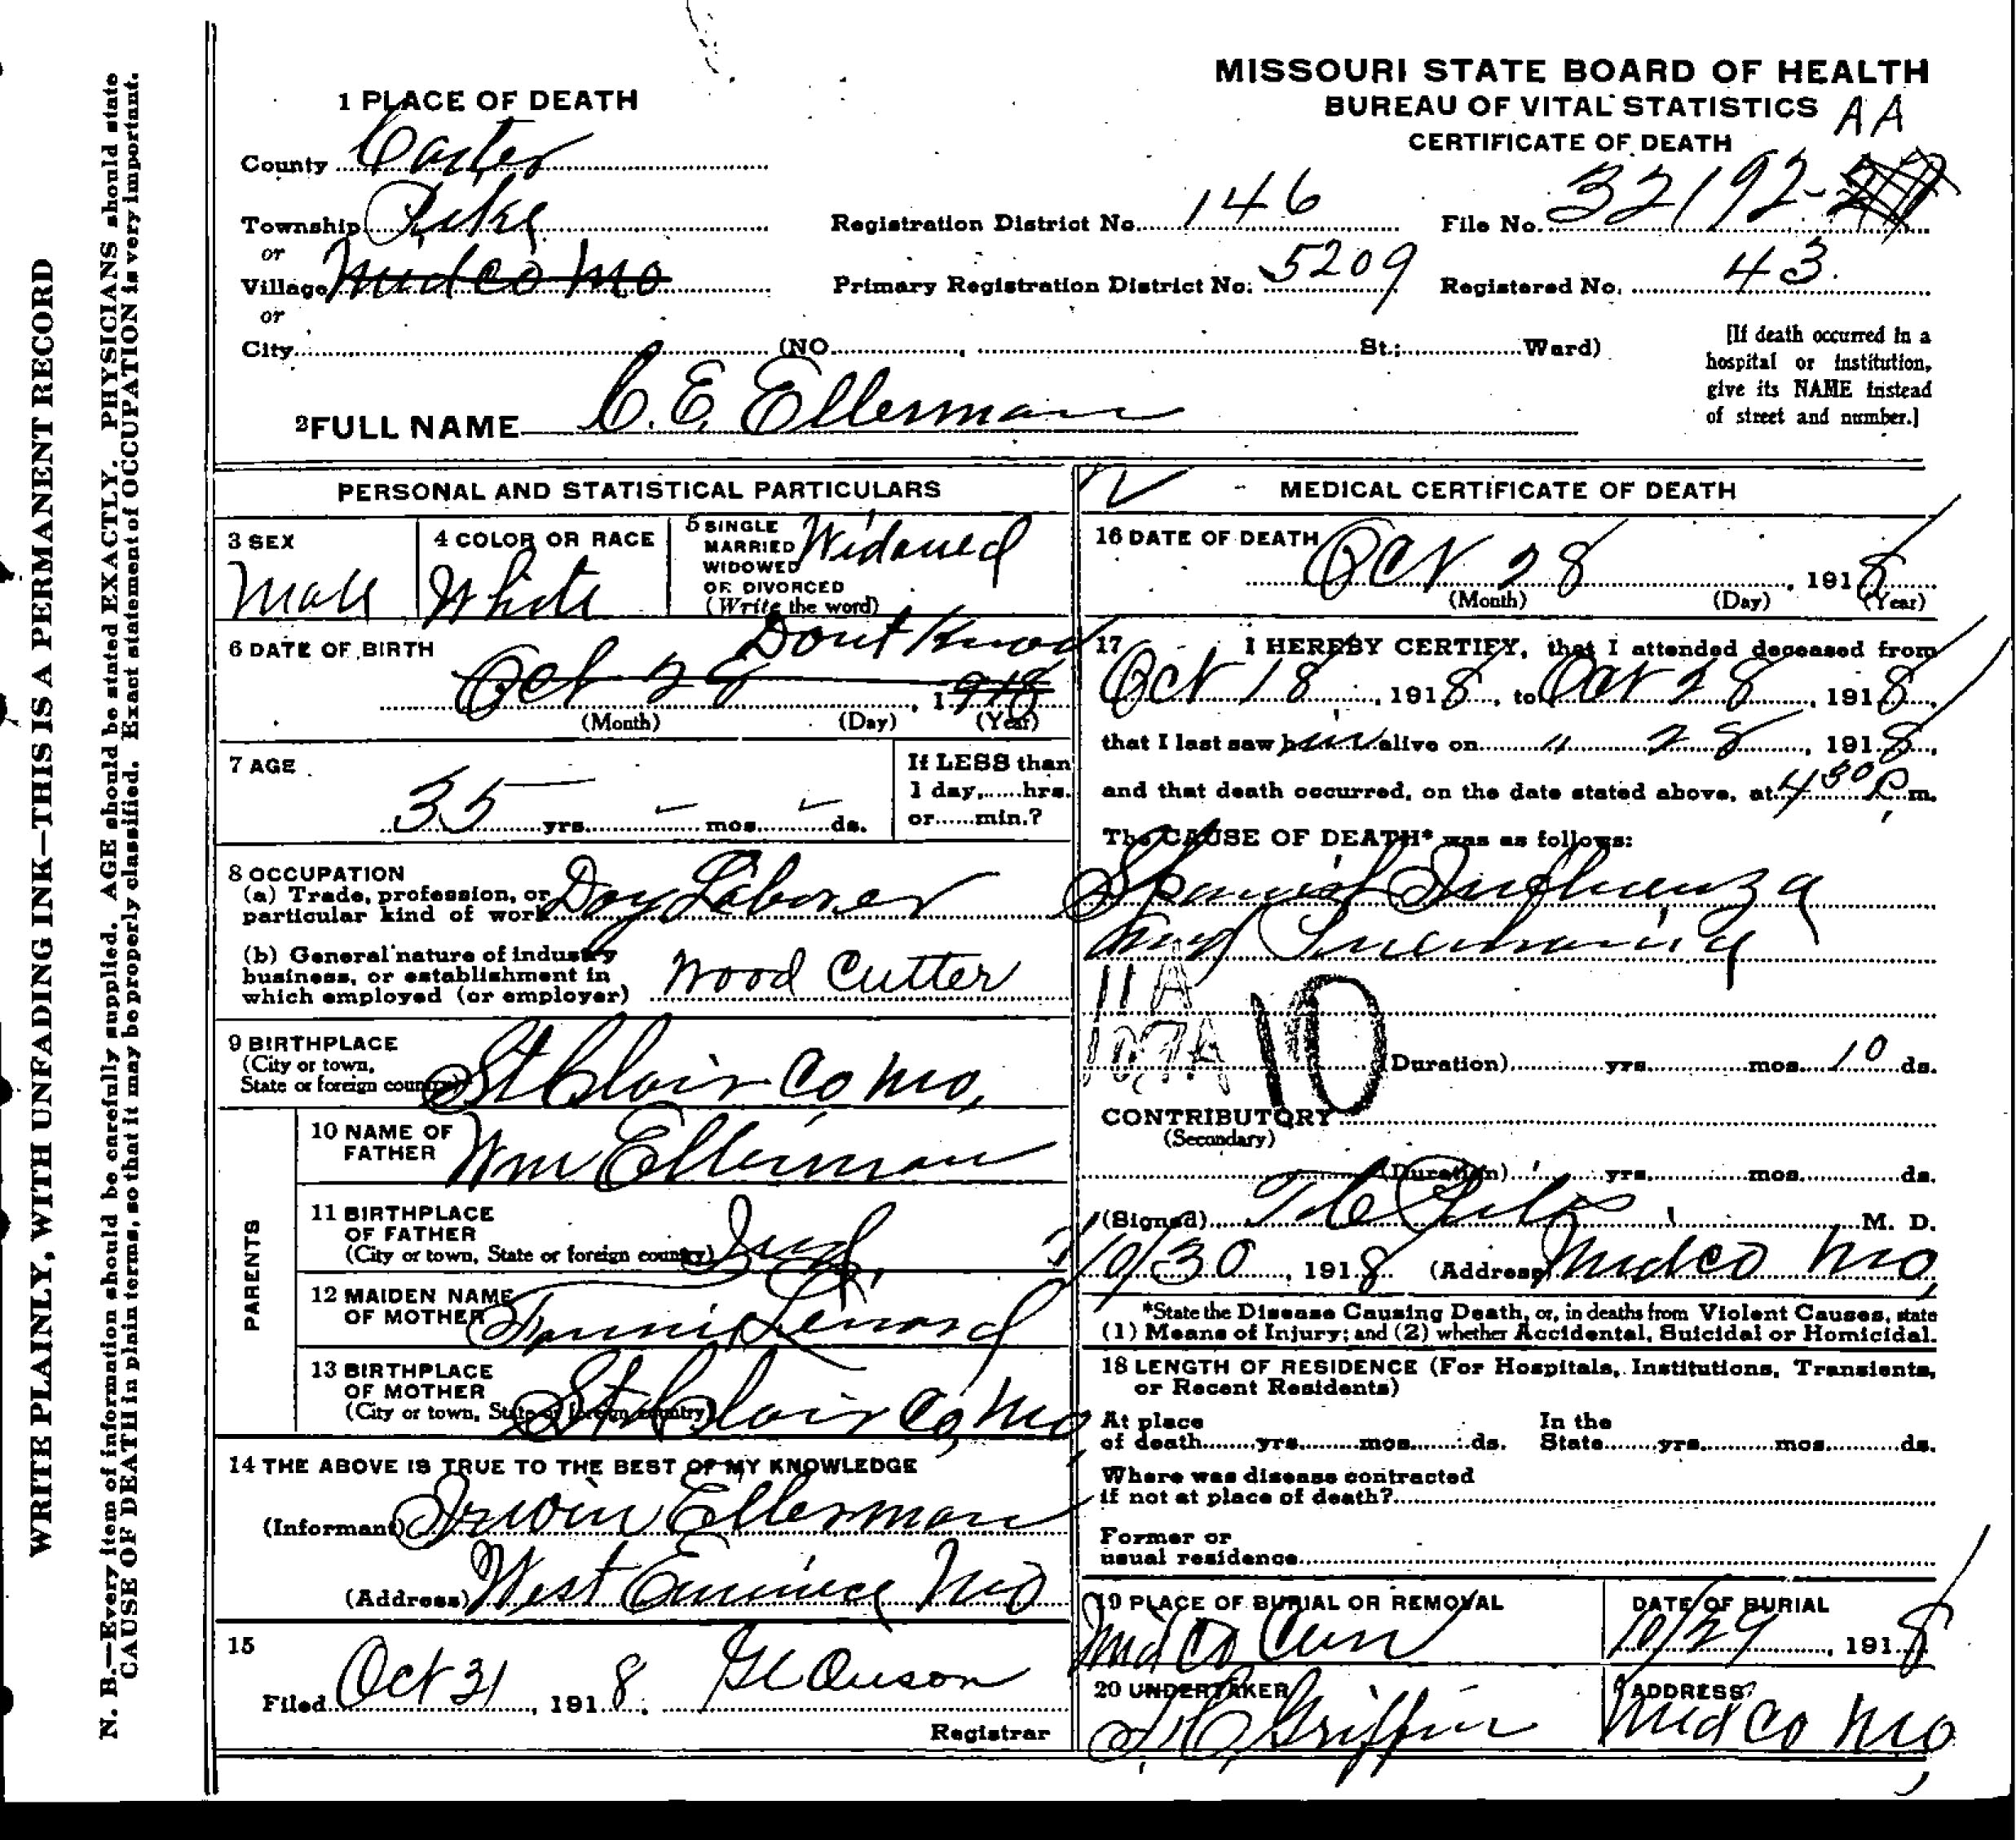 WRITE PLAINLY, WITH UNFADING INK—THIS IS A PERMANENT RECORD
N. B.—Every item of information should be carefully supplied. AGE should be stated EXACTLY. PHYSICIANS should state
CAUSE OF DEATH in plain terms, so that it may be properly classified. Exact statement of OCCUPATION is very important.
MISSOURI STATE BOARD OF HEALTH
BUREAU OF VITAL STATISTICS AA
CERTIFICATE OF DEATH
1 PLACE OF DEATH
County Carter
Township Pike
or
Village Midco Mo
or
City (NO. St.; Ward)
Registration District No. 146
File No. 32192-
Primary Registration District No. 5209
Registered No. 43
[If death occurred in a
hospital or institution,
give its NAME instead
of street and number.]
2 FULL NAME C. E. Ellerman
PERSONAL AND STATISTICAL PARTICULARS
3 SEX
Male
4 COLOR OR RACE
White
5 SINGLE
MARRIED
WIDOWED
OR DIVORCED
(Write the word)
Widowed
6 DATE OF BIRTH
Dont Know
Oct 28, 1918
(Month) (Day) (Year)
7 AGE
35 yrs. – mos. – ds.
If LESS than
1 day,......hrs.
or......min.?
8 OCCUPATION
(a) Trade, profession, or
particular kind of work Day Laborer
(b) General nature of industry
business, or establishment in
which employed (or employer) Wood Cutter
9 BIRTHPLACE
(City or town,
State or foreign country) St Clair Co Mo,
PARENTS
10 NAME OF
FATHER
Wm Ellerman
11 BIRTHPLACE
OF FATHER
(City or town, State or foreign country) Ind
12 MAIDEN NAME
OF MOTHER
13 BIRTHPLACE
OF MOTHER
(City or town, State or foreign country) St Clair Co, Mo
14 THE ABOVE IS TRUE TO THE BEST OF MY KNOWLEDGE
(Informant) Irwin Ellerman
(Address) West Eminence Mo
15
Filed Oct 31, 1918.
Registrar
MEDICAL CERTIFICATE OF DEATH
16 DATE OF DEATH
Oct 28, 1918
(Month) (Day) (Year)
17 I HEREBY CERTIFY, that I attended deceased from
Oct 18, 1918, to Oct 28, 1918,
that I last saw him alive on " 28, 1918,
and that death occurred, on the date stated above, at 4 30 P.m.
The CAUSE OF DEATH* was as follows:
Spanish Influenza
and Pneumonia
11A
107A 10
(Duration) yrs. mos. 10 ds.
CONTRIBUTORY
(Secondary)
(Duration) yrs. mos. ds.
(Signed) M. D.
10/30, 1918 (Address) Midco Mo
*State the Disease Causing Death, or, in deaths from Violent Causes, state
(1) Means of Injury; and (2) whether Accidental, Suicidal or Homicidal.
18 LENGTH OF RESIDENCE (For Hospitals, Institutions, Transients,
or Recent Residents)
At place
of death yrs. mos. ds.
In the
State yrs. mos. ds.
Where was disease contracted
if not at place of death?
Former or
usual residence
19 PLACE OF BURIAL OR REMOVAL
Midco Cem
DATE OF BURIAL
10/29, 1918
20 UNDERTAKER
Griffin
ADDRESS
Midco Mo